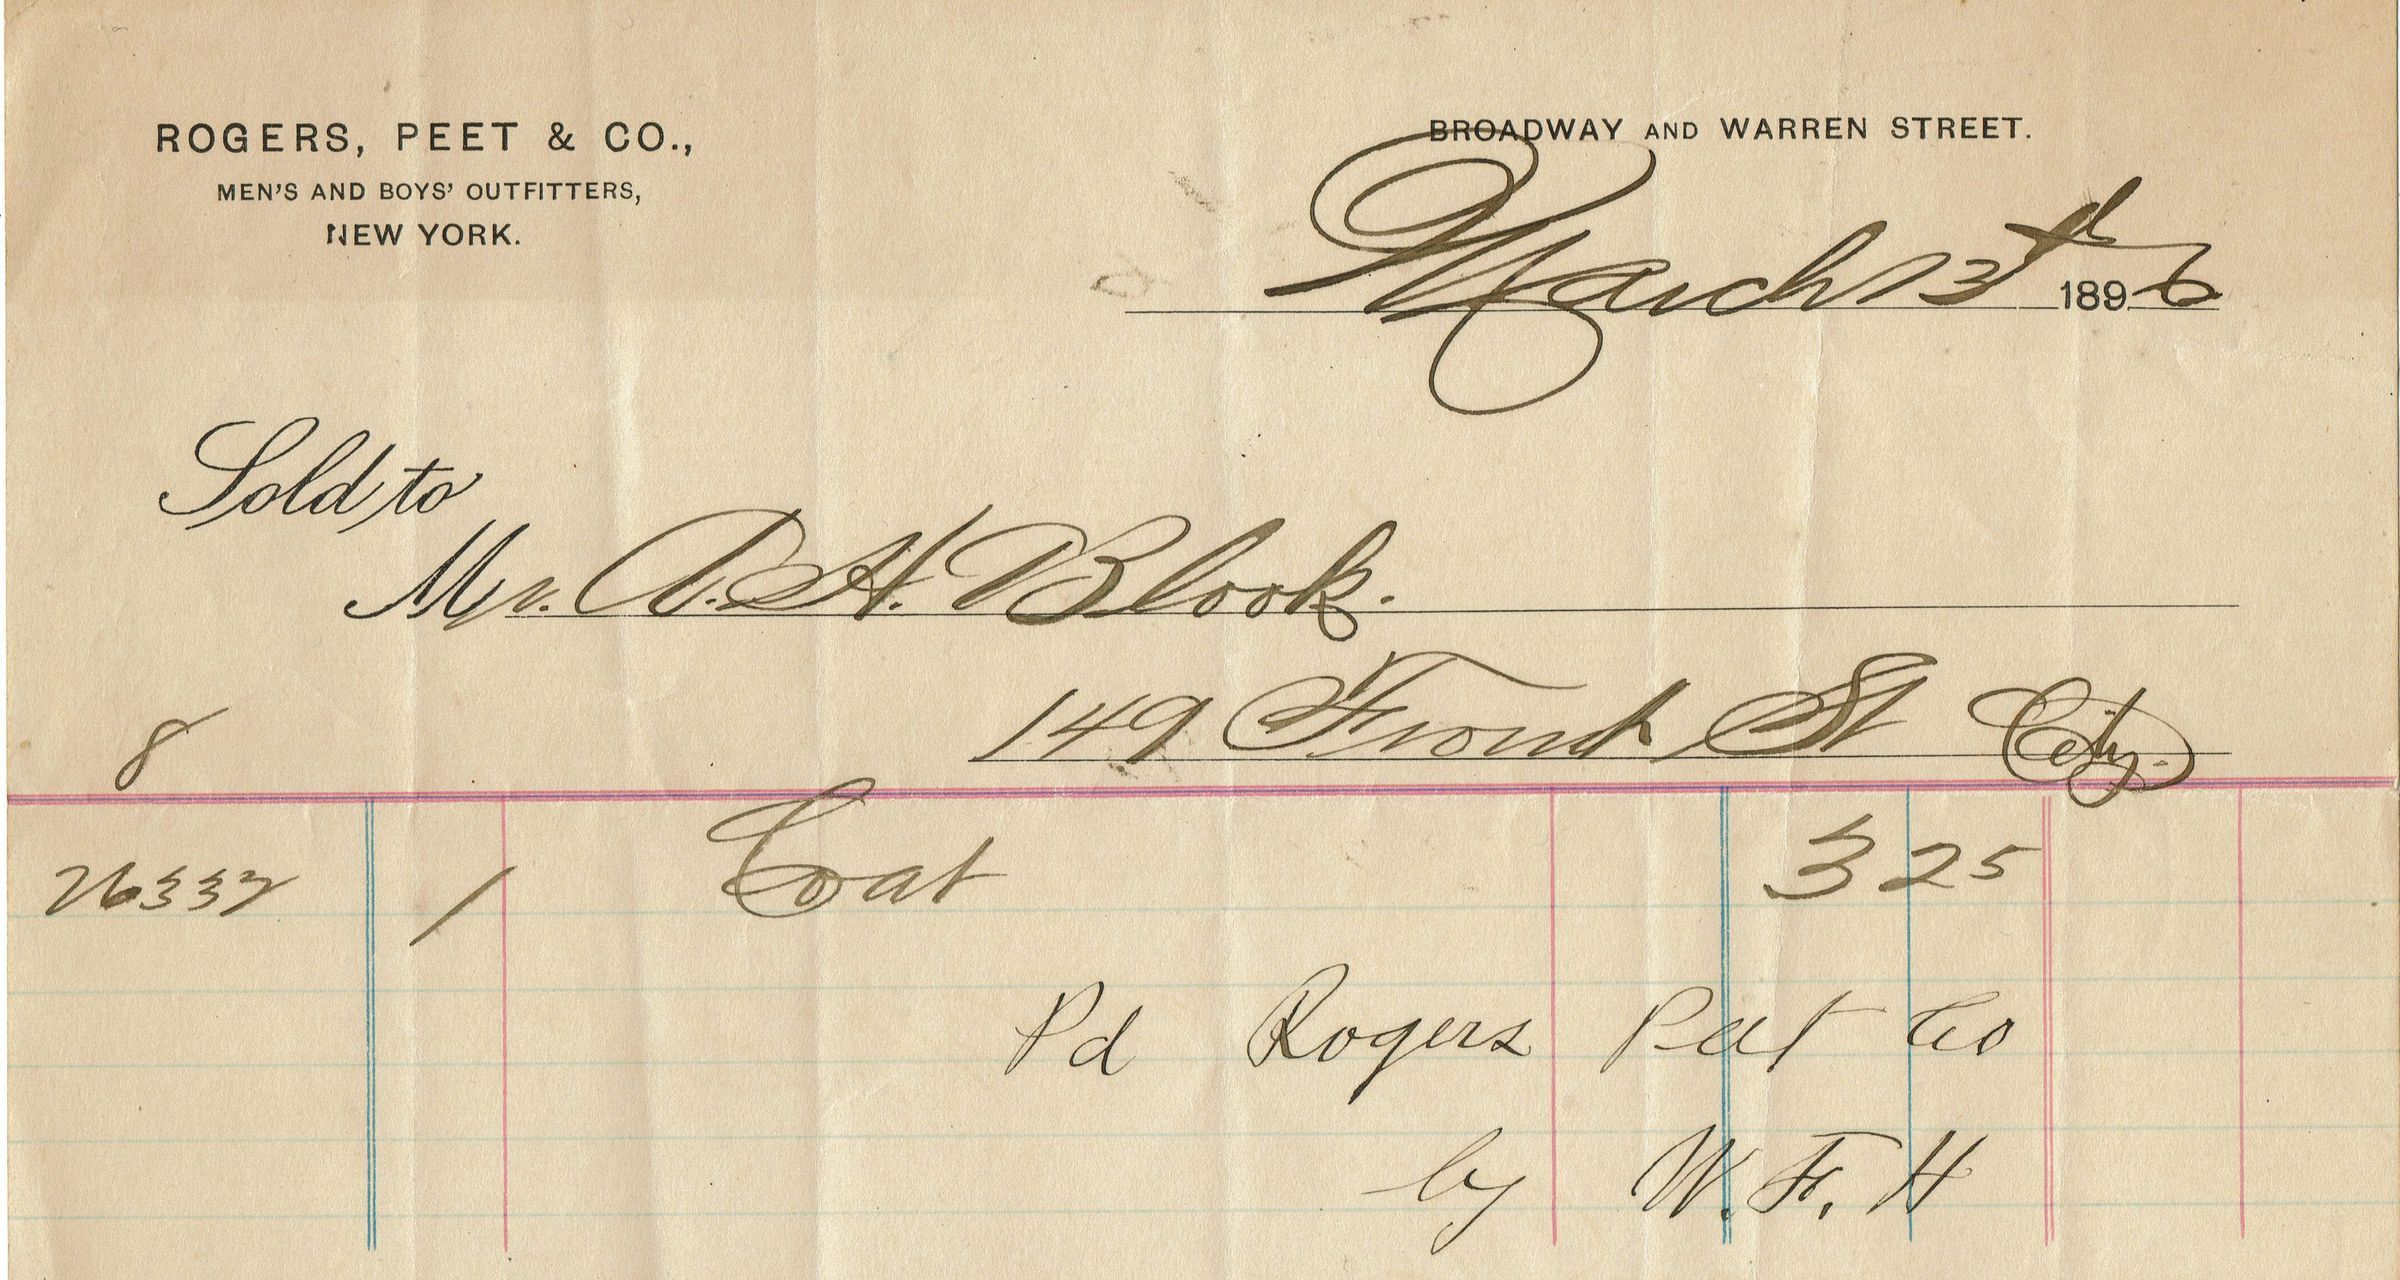 ROGERS, PEET & CO.,
MEN'S AND BOYS' OUTFITTERS,
NEW YORK.
BROADWAY AND WARREN STREET.
March 13th 1896
Sold to
Mr. A. H. Blook.
149 Front St City.
8
26337 1 Coat 3 25
Pd Rogers Peet Co
by W. F. H